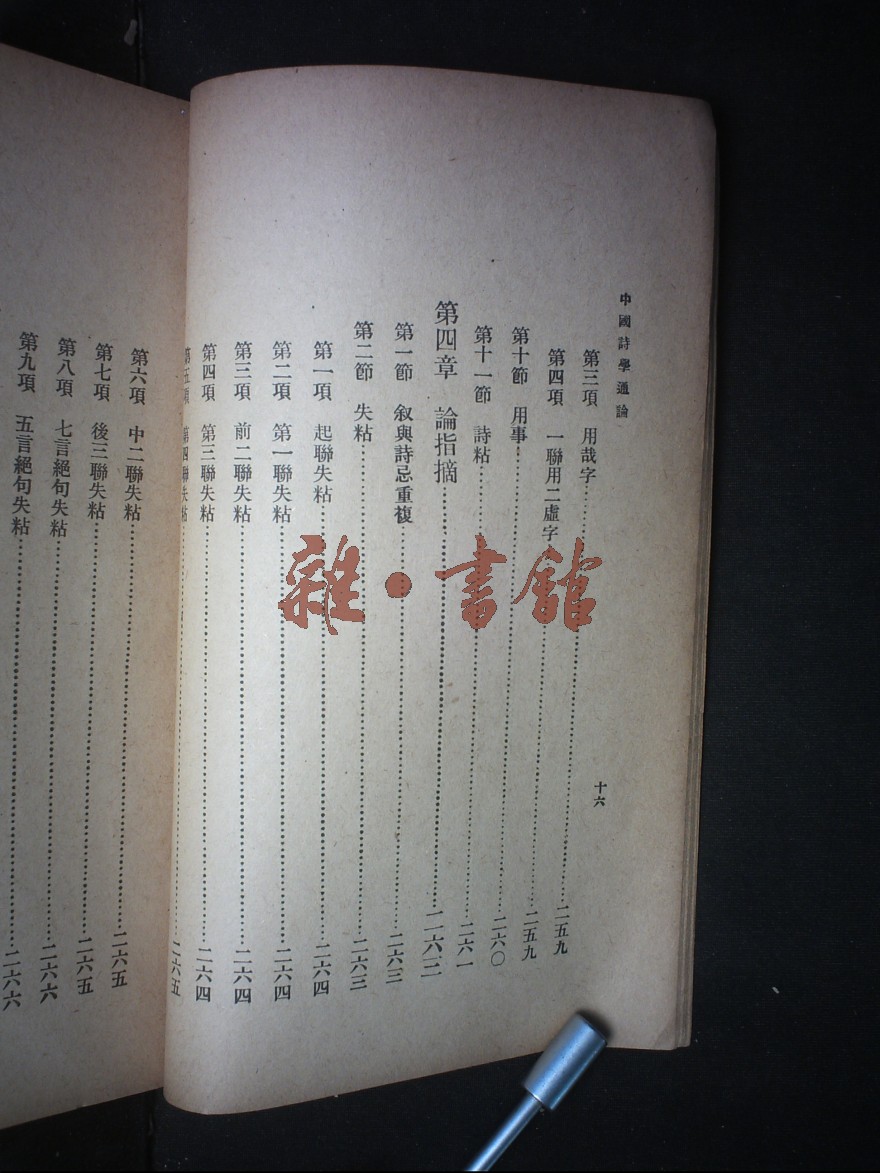 中國詩學通論
十六
第三項 用哉字……二五九
第四項 一聯用二虛字……二五九
第十節 用事……二六〇
第十一節 詩粘……二六一
第四章 論指摘……二六三
第一節 叙與詩忌重複……二六三
第二節 失粘……二六三
第一項 起聯失粘……二六四
第二項 第一聯失粘……二六四
第三項 前二聯失粘……二六四
第四項 第三聯失粘……二六四
第五項 第四聯失粘……二六五
第六項 中二聯失粘……二六五
第七項 後三聯失粘……二六五
第八項 七言絕句失粘……二六六
第九項 五言絕句失粘……二六六
雜·書館